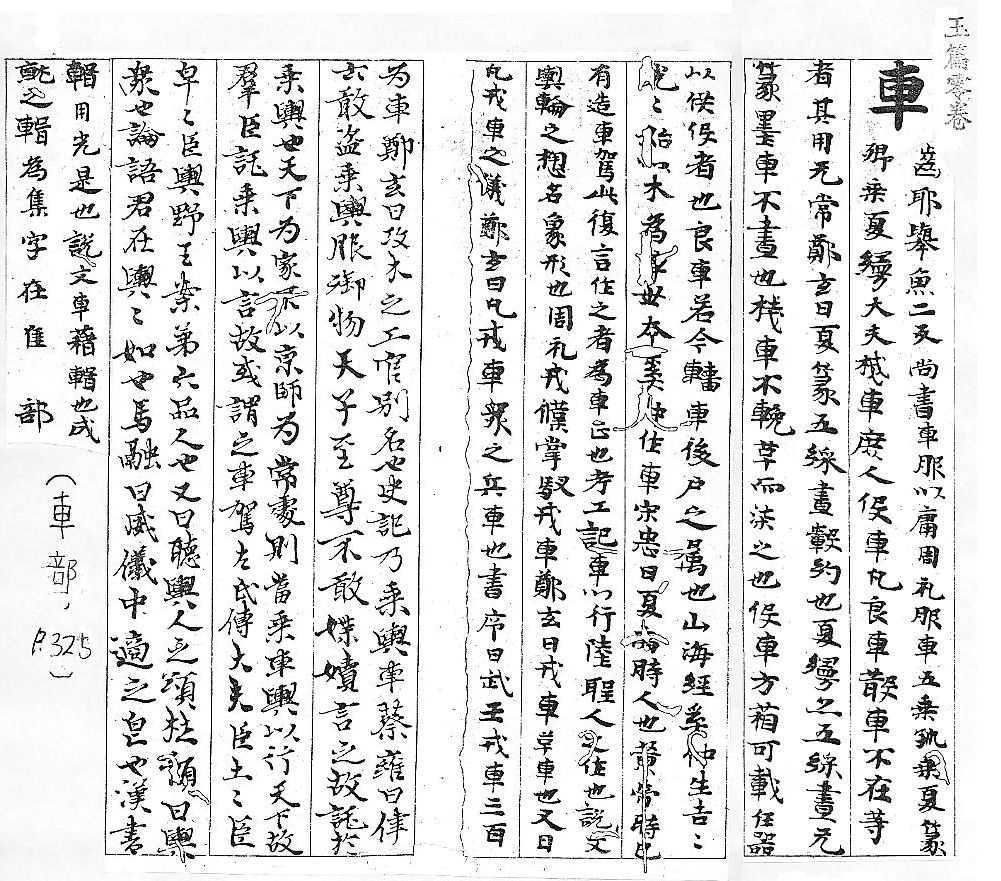 玉篇零卷
車
齒耶舉魚二反尚書車服以庸周礼服車五乘孤乘夏篆
卿乘夏縵大夫棧車庶人伇車凢良車散車不在等
者其用无常鄭玄曰夏篆五綵畫轂約也夏縵之五綵畫无
篆墨車不畫也棧車不鞔草而柒之也伇車方葙可載任器
以供伇者也良車若今轓車後戶之属也山海經奚仲生吉〻
光〻始以木為車世本奚仲作車宋忠曰夏禹時人也黄帝時已
有造車駕此復言作之者為車正也考工記車以行陸聖人之作也說文
輿輪之揔名象形也周礼戎僕掌馭戎車鄭玄曰戎車革車也又曰
凢戎車之儀鄭玄曰凢戎車衆之兵車也書序曰武王戎車三百
為車鄭玄曰攻木之工官別名也史記乃乘輿車蔡雍曰律
敢盜乘輿服御物天子至尊不敢媟嬻言之故託於
乘輿也天下为家不以京師为常處則當乘車輿以行天下故
羣臣託乘輿以言故或謂之車駕左氏傳大夫臣士〻臣
皁〻臣輿野王案第六品人也又曰聽輿人之頌杜預曰輿
衆也論語君在輿〻如也馬融曰威儀中適之皃也漢書
輯用光是也說文車藉輯也成
就之輯為集字在隹部
（車部，P.325）